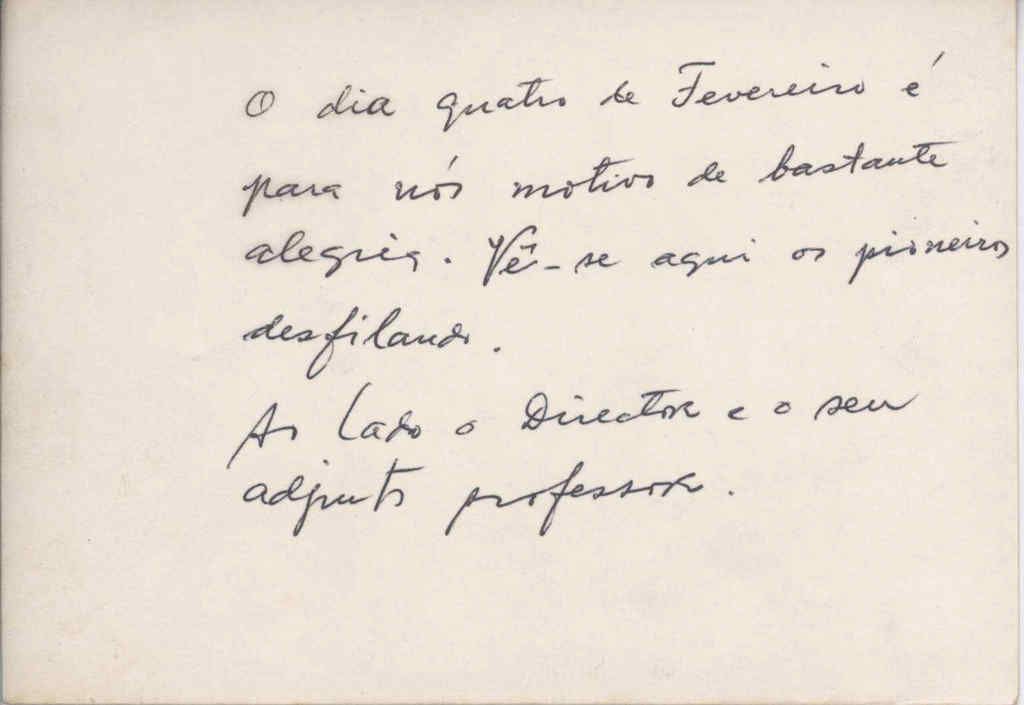 O dia quatro de Fevereiro é
para nós motivo de bastante
alegria. Vê-se aqui os pioneiros
desfilando.
Ao lado o Director e o seu
adjunto professor.